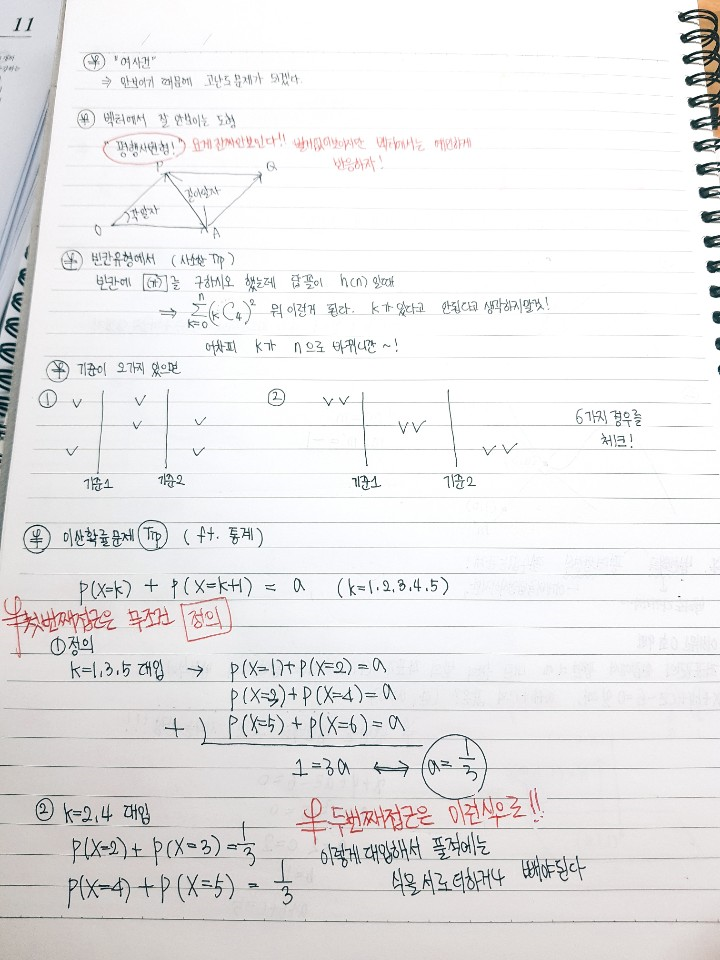 11
"여사건"
⇒ 안보이기 때문에 고난도문제가 되겠다.
벡터에서 잘 안보이는 도형
"평행사변형!" 요게 진짜안보인다!! 벡터에서는 예민하게
반응하자!
P Q
꼰이알자
각알자
O A
빈칸유형에서 (사소한 Tip)
빈칸에 (가)를 구하시오 했는데 답꼴이 h(n) 일때
⇒ n∑k=0 (kC4)² 뭐 이런게 된다. k가 있다고 안된다고 생각하지말것!
어차피 k가 n으로 바뀌니깐~!
기준이 2가지 있으면
① ②
6가지 경우를
체크!
기준1 기준2 기준1 기준2
이산확률문제 Tip (ft. 통계)
P(X=k) + P(X=k+1) = a (k=1.2.3.4.5)
첫번째접근은 무조건 정의
① 정의
k=1.3.5 대입 → P(X=1)+P(X=2)=a
P(X=3)+P(X=4)=a
+) P(X=5)+P(X=6)=a
1=3a ⟺ a=1/3
② k=2.4 대입 두번째접근은 이런식으로!!
P(X=2)+P(X=3)=1/3 이렇게 대입해서 풀적에는
P(X=4)+P(X=5)=1/3 식을 서로 더하거나 빼야된다